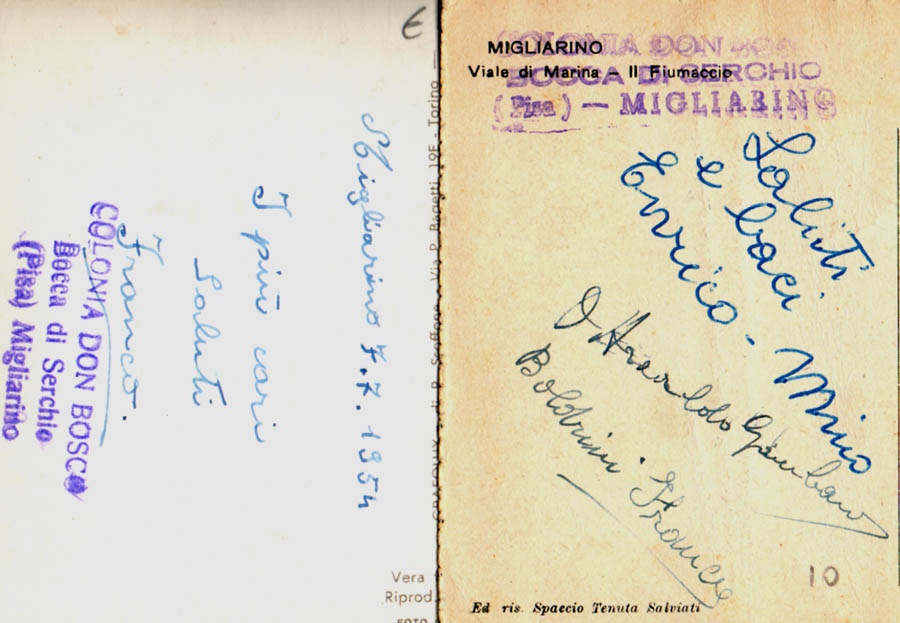 €
Migliarino 7.7.1954
I più cari
Saluti
Franco.
COLONIA DON BOSCO
Bocca di Serchio
(Pisa) Migliarino
Via P. Bagetti, 19E - Torino
Vera
Riprod
FOTO
MIGLIARINO
Viale di Marina - Il Fiumaccio
COLONIA DON BOS
BOCCA DI SERCHIO
(Pisa) - MIGLIARINO
Saluti
e baci
Enrico - Mino
Boldrini
10
Ed ris. Spaccio Tenuta Salviati